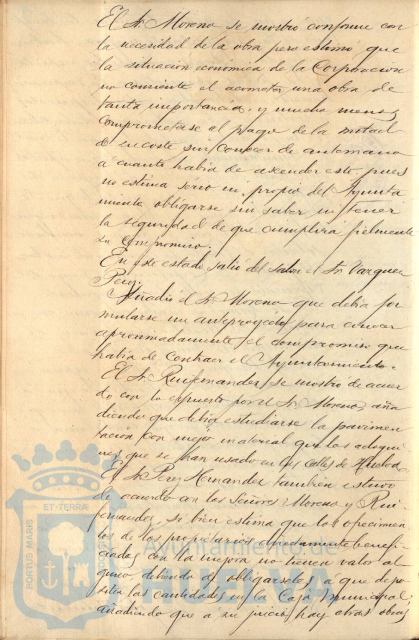 El Sr. Moreno se mostró conforme con
la necesidad de la obra pero estimo que
la situacion economica de la Corporacion
no consiente el acometer una obra de
tanta importancia, y mucho menos
comprometerse al pago de la mitad
de su coste sin conocer de antemano
a cuanto habia de ascender este, pues
no estima serio ni propio del Ayunta
miento obligarse sin saber ni tener
la seguridad de que cumplirá fielmente
su compromiso.
En este estado salió del salon el Sr. Vazquez
Perez.
Añadió el Sr. Moreno que debia for
mularse un anteproyecto para conocer
aproximadamente el compromiso que
habia de contraer el Ayuntamiento.
El Sr. Ruifernandez se mostro de acuer
do con lo expuesto por el Sr. Moreno, aña
diendo que debia estudiarse la pavimen
tación con mejor material que los adoqui
nes que se han usado en las calles de Huelva.
El Sr. Perez Hernandez tambien estuvo
de acuerdo con los Señores Moreno y Rui
fernandez, si bien estima que los ofrecimien
tos de los propietarios directamente benefi
ciados con la mejora no tienen valor al
guno debiendo de obligarseles a que depo
siten las cantidades en la Caja municipal;
añadiendo que a su juicio hay otras obras
PORTUS MARIS
ET TERRÆ
Ayuntamiento de
HUELVA